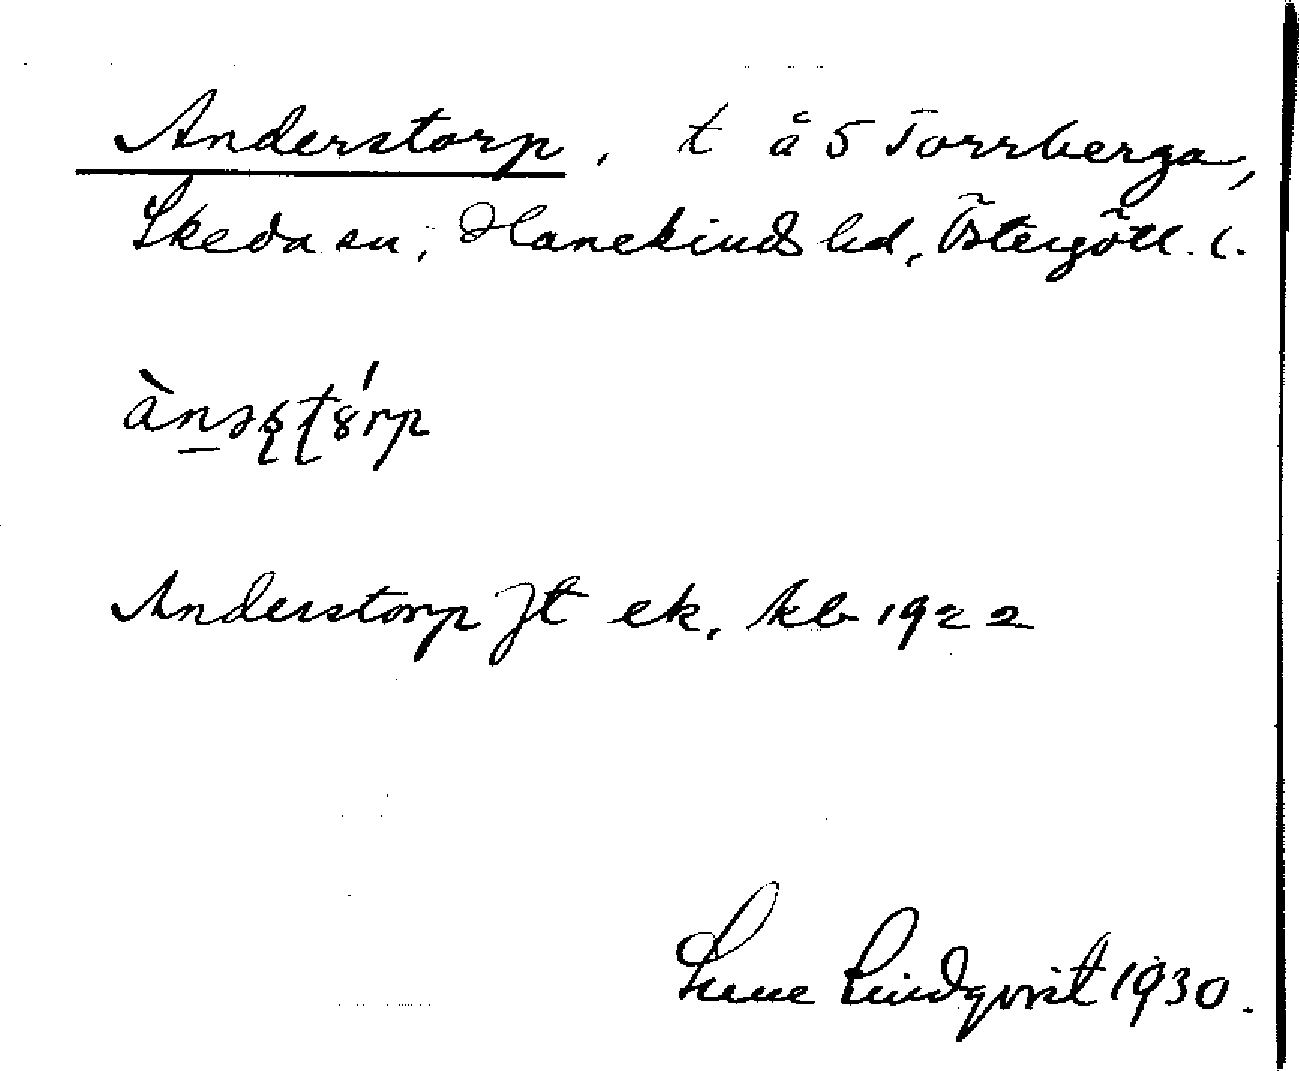 Anderstorp, t å 5 Torrberga,
Skeda sn, Hanekinds hd, Östergötl. l.
ànəʂʈ8́rp
Anderstorp Jt ek, kb 1922
Sune Lindqvist 1930.